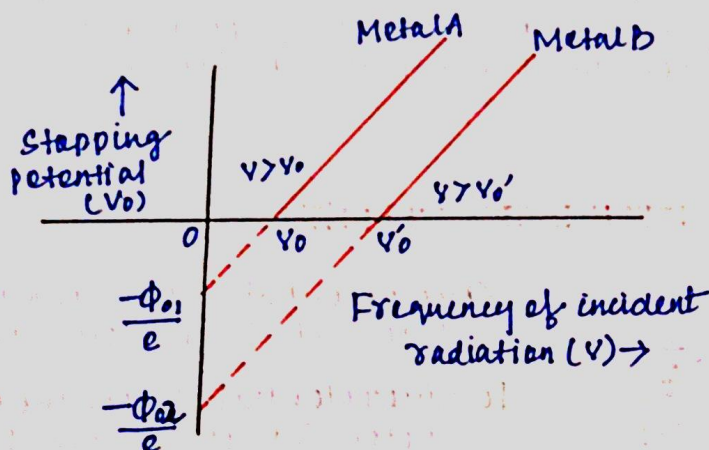 Metal A
Metal B
↑
Stopping
potential
(V₀)
ν > ν₀
ν > ν₀'
0
ν₀
ν₀'
-Φ₀₁
e
Frequency of incident
radiation (ν) →
-Φ₀₂
e